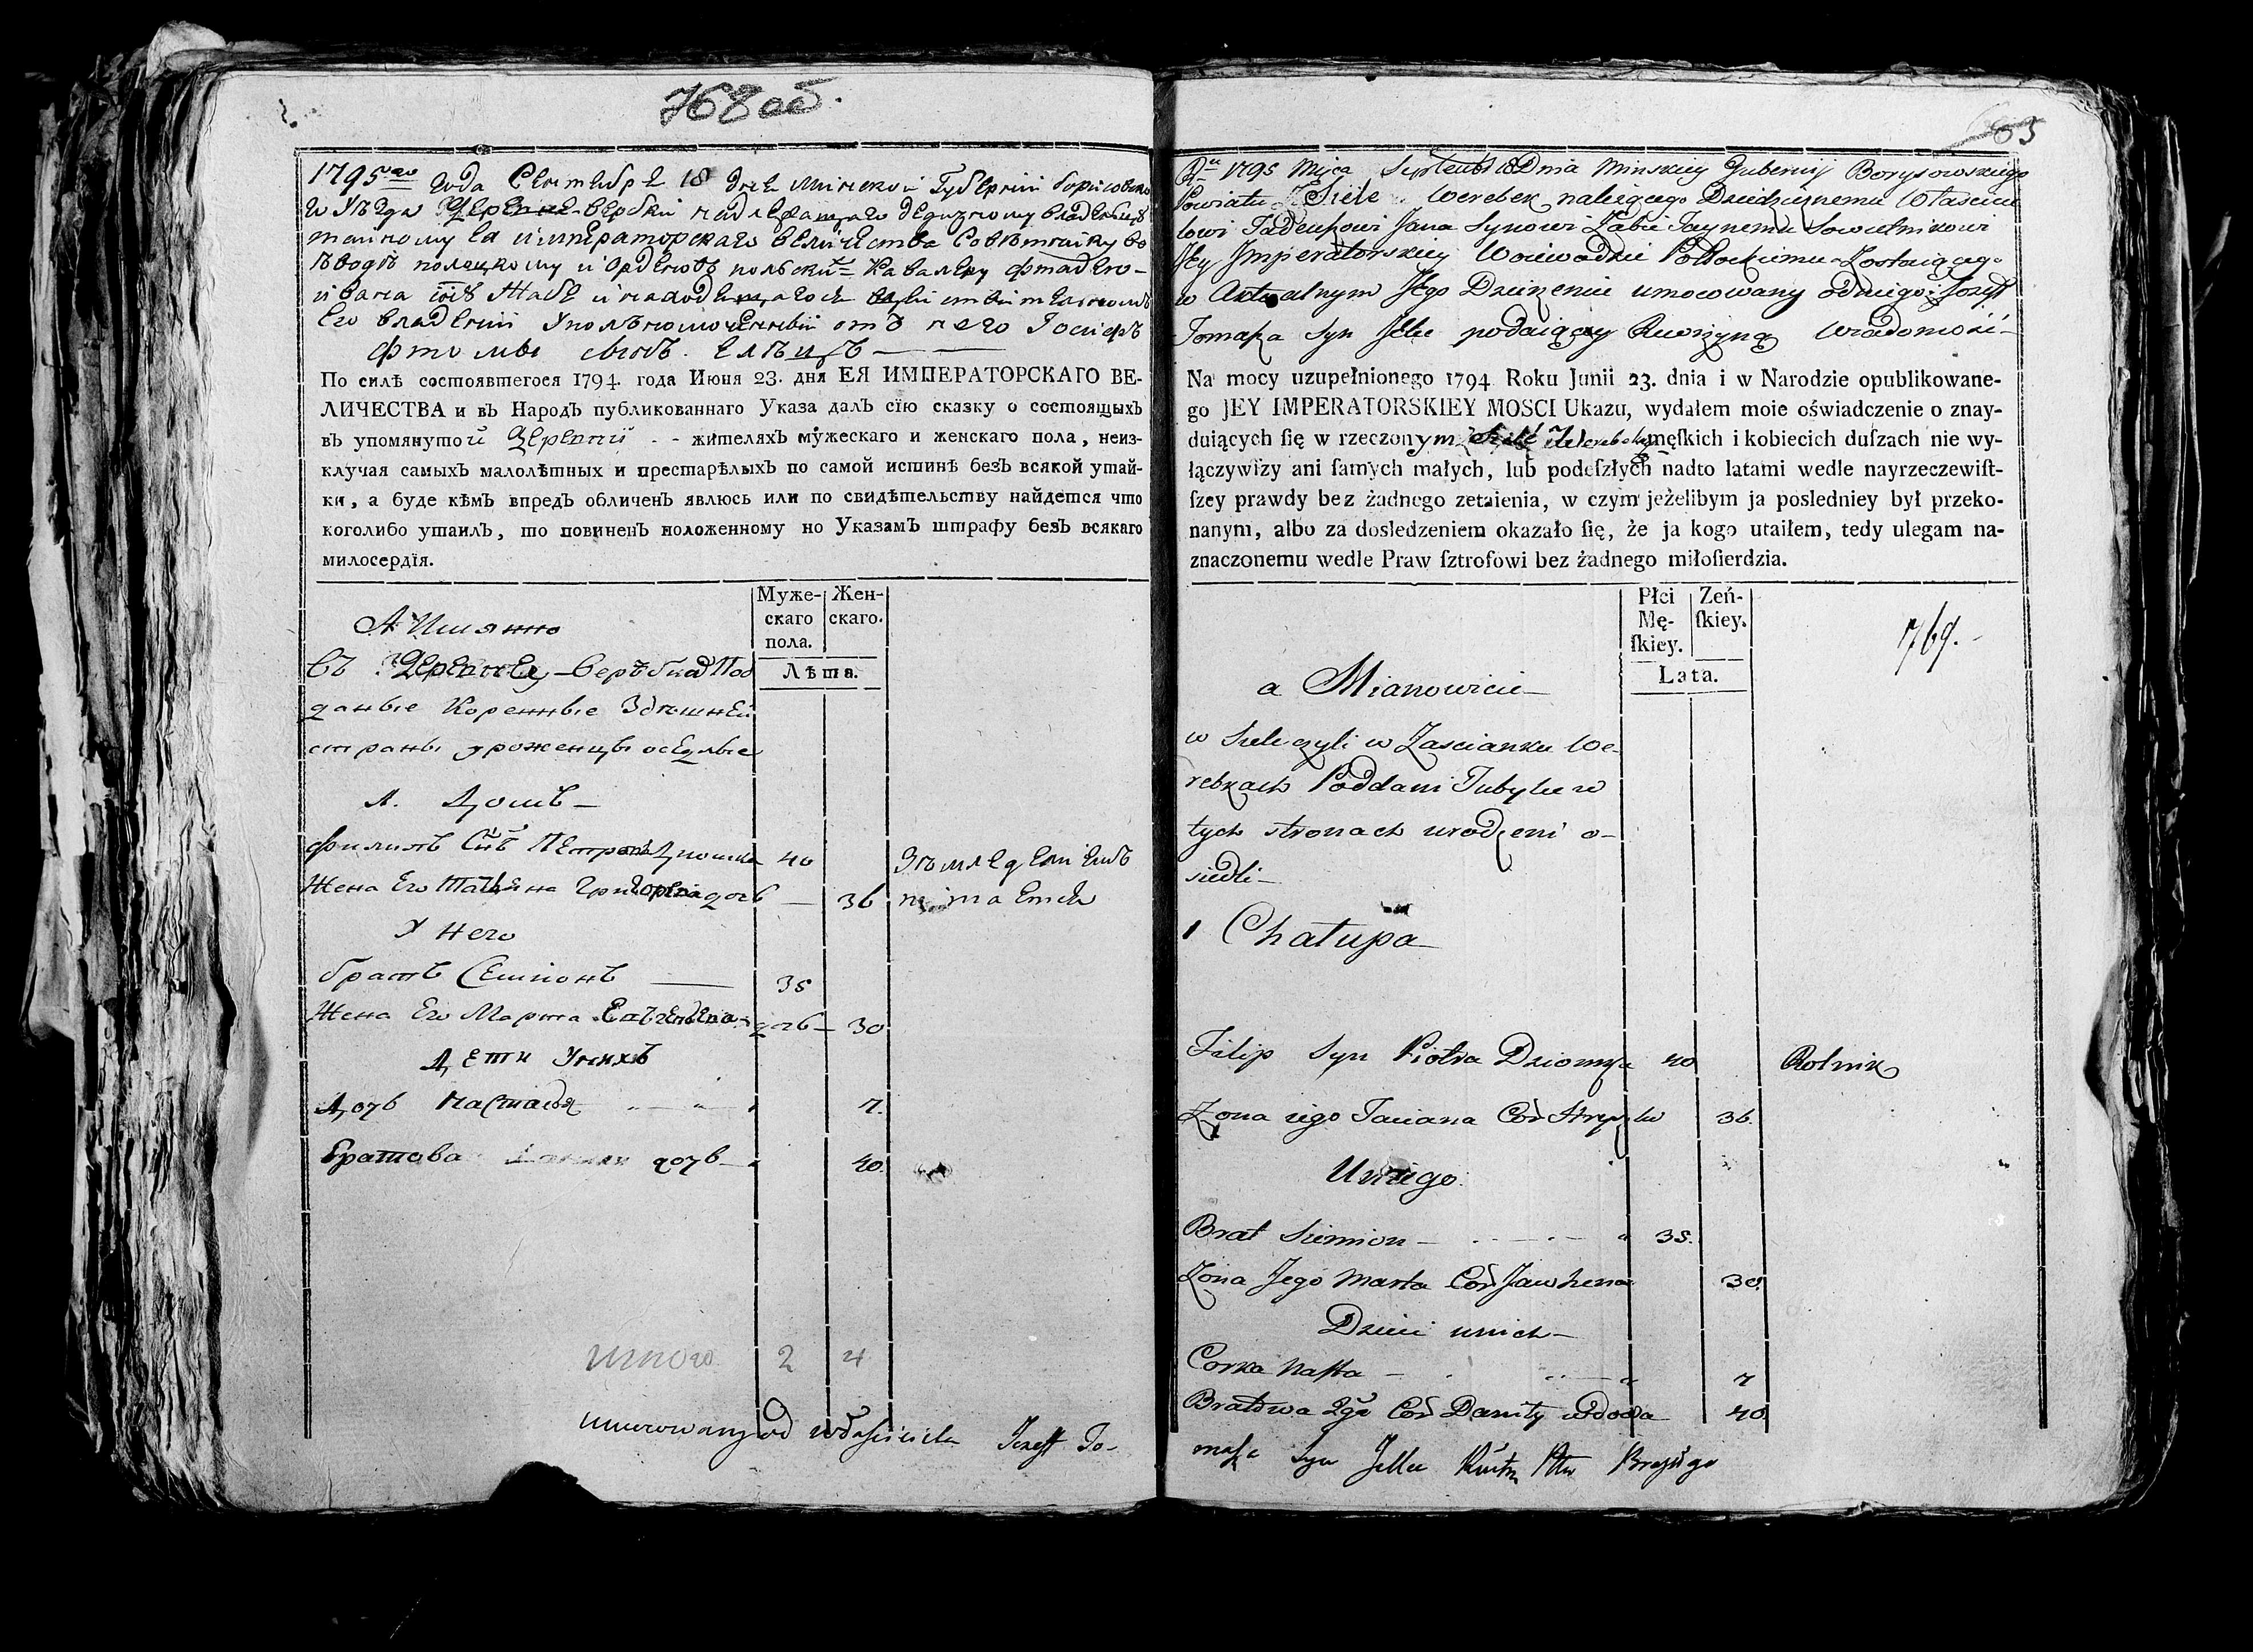 768 об.
1795го года Сентебре 18 дне Минской Губернии Борисовско
го Уезда Деревне Веребки надлежащаго дедичному владельцу
тайному Ея императорскаго величества Советнику во
еводе полоцкому и Орденовъ польскихъ Кавалеру Фтадею
ивана сну Жабе и находещагосе въ действительномъ
Его владении Уполномоченный отъ него Госифъ
Фтомы сынъ Ельцъ
По силѣ состоявшегося 1794. года Июня 23. дня ЕЯ ИМПЕРАТОРСКАГО ВЕ-
ЛИЧЕСТВА и въ Народъ публикованнаго Указа далъ сїю сказку о состоящыхъ
въ упомянутой Дереvни - - жителяхъ мужескаго и женскаго пола, неиз-
ключая самыхъ малолѣтныхъ и престарѣлыхъ по самой истинѣ безъ всякой утай-
ки, а буде кѣмъ впредъ обличенъ явлюсь или по свидѣтельству найдется что
коголибо утаилъ, то повиненъ положенному по Указамъ штрафу безъ всякаго
милосердїя.
Муже-
скаго
пола.
Жен-
скаго.
Лѣта.
А Имянно
Въ Деревне Веребкахъ Под
даные Коренные Здешней
страны уроженцы оседлые
1. Домъ
Филипъ Снъ Петра Дюшка 40 Земледелиемъ
Жена Его Татьяна Григорева дочь 36 питаетсе
У Него
братъ Семионъ 35
Жена Его Марта дочь 30
Дети Унихъ
Дочь Настасья 7.
Братова дочь 40.
итого 2 4
umocowany od właściciela Jozeff To-
Rku 1795 Mjca Septembr 18 Dnia Minskiey Gubernij Borysowskiego
Powiatu z Siele Werebek należącego Dziedzicznemu Własciciel
lowi Tadeuszowi Jana Synowi Zabie Taynemu Sowietnikowi
Jey Imperatorskiey Woiewodzie Połłockiemu Zostaiącego
w Aktualnym Jego Dzierzeniu umocowany od niego Jozeff
Tomasza Syn Jelec podaiący Rewizyną Wiadomość
Na mocy uzupełnionego 1794 Roku Junii 23. dnia i w Narodzie opublikowane-
go JEY IMPERATORSKIEY MOSCI Ukazu, wydałem moie oświadczenie o znay-
duiących ſię w rzeczonym Siele Werebek męſkich i kobiecich duſzach nie wy-
łączywſzy ani ſamych małych, lub podeſzłych nadto latami wedle nayrzeczewiſt-
ſzey prawdy bez żadnego zetaienia, w czym jeżelibym ja posledniey był przeko-
nanym, albo za dosledzeniem okazało ſię, że ja kogo utaiłem, tedy ulegam na-
znaczonemu wedle Praw ſztrofowi bez żadnego miłoſierdzia.
Płci
Mę-
ſkiey.
Zeń-
ſkiey.
Lata.
769.
a Mianowicie
w Siele czyli w Zascianku We-
rebkach Poddani Tubylce w
tych stronach urodzeni o-
siedli
1 Chałupa
Filip Syn Piotra Dziomka 40 Rolnik
Zona iego Taciana Cor 36.
U niego
Brat Siemion 35.
Zona Jego Marta Cor Jawhena 30.
Dzieci u nich
Corka Nasta 7
Bratowa Cor Daniły wdowa 40
masza Syn Jelec